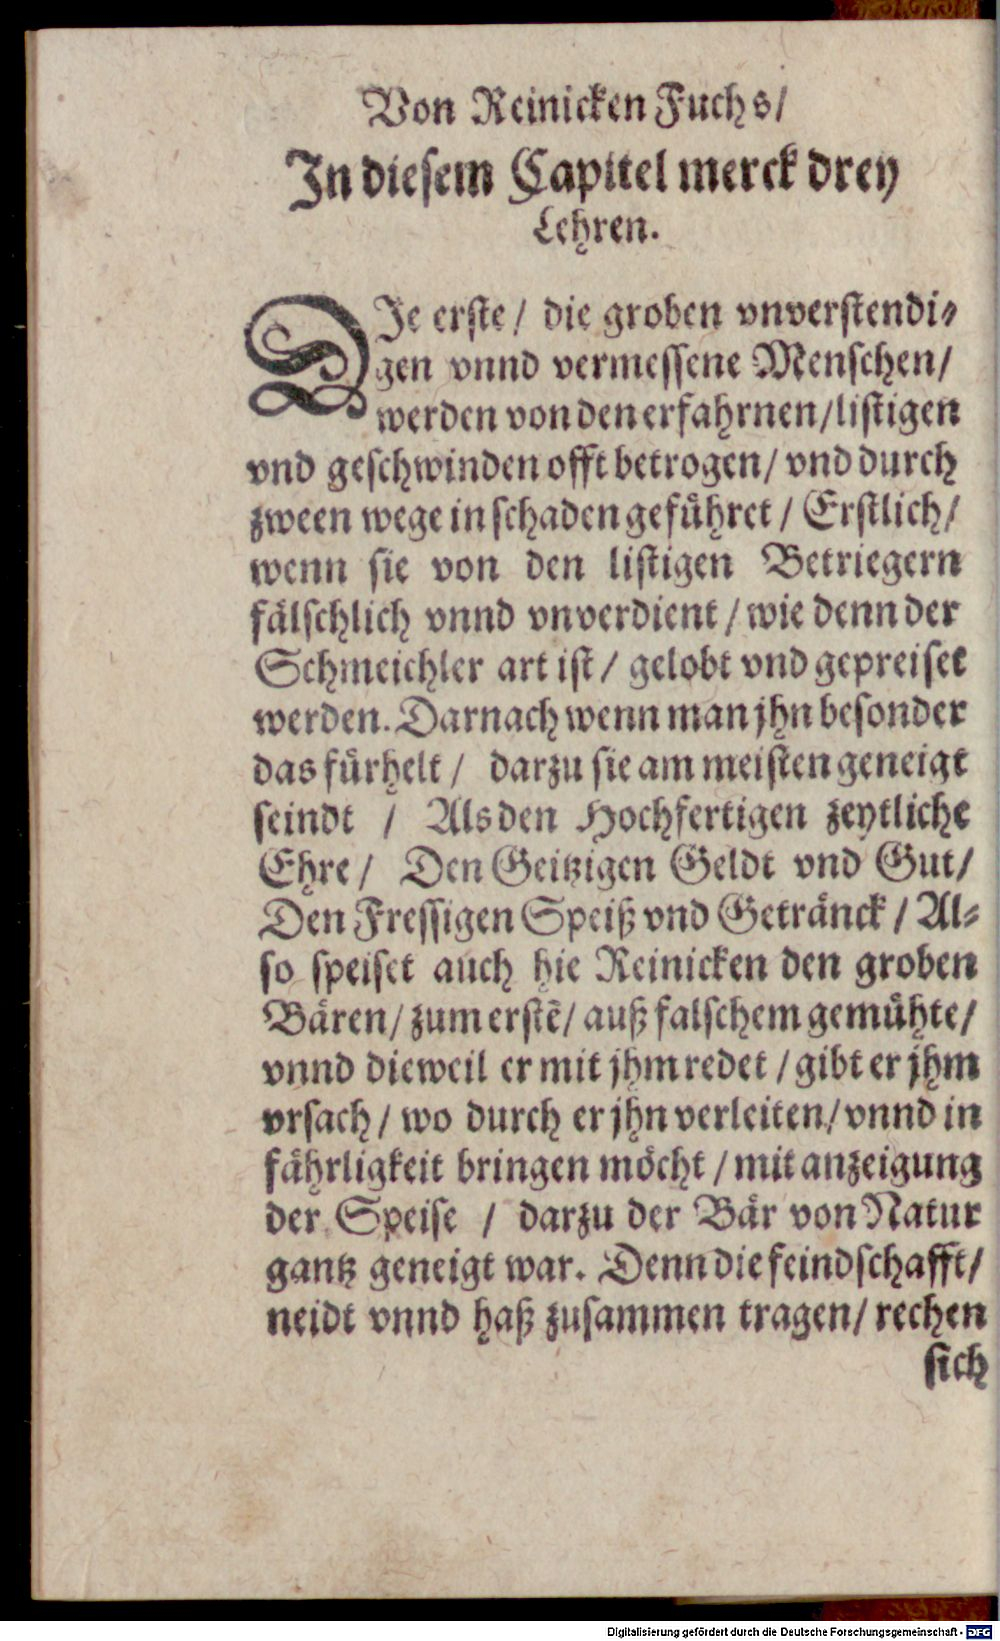 Von Reinicken Fuchs/
In diesem Capittel merck drey
Lehren.
DIe erste/ die groben vnverstendi⸗
gen vnnd vermessene Menschen/
werden von den erfahrnen/ listigen
vnd geschwinden offt betrogen/ vnd durch
zween wege in schaden geführet/ Erstlich/
wenn sie von den listigen Betriegern
fälschlich vnnd vnverdient/ wie denn der
Schmeichler art ist/ gelobt vnd gepreiset
werden. Darnach wenn man jhn besonder
das fürhelt/ darzu sie am meisten geneigt
seindt / Als den Hochfertigen zeytliche
Ehre/ Den Geitzigen Geldt vnd Gut/
Den Fressigen Speiß vnd Getränck/ Al⸗
so speiset auch hie Reinicken den groben
Bären/ zum erstẽ/ auß falschem gemühte/
vnnd dieweil er mit jhm redet/ gibt er jhm
vrsach/ wo durch er jhn verleiten/ vnnd in
fährligkeit bringen möcht/ mit anzeigung
der Speise / darzu der Bär von Natur
gantz geneigt war. Denn die feindschafft/
neidt vnnd haß zusammen tragen/ rechen
sich
Digitalisierung gefördert durch die Deutsche Forschungsgemeinschaft - DFG